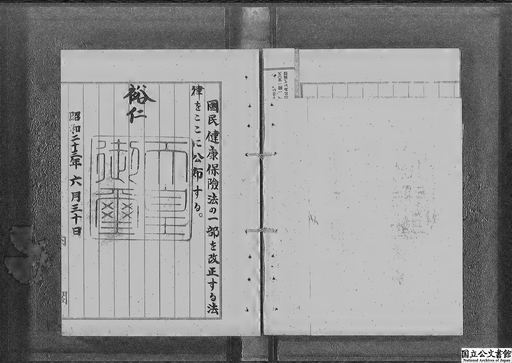 國民健康保險法の一部を改正する法
律をここに公布する。
裕仁
天皇
御璽
昭和二十三年六月三十日
内閣
国立公文書館
National Archives of Japan